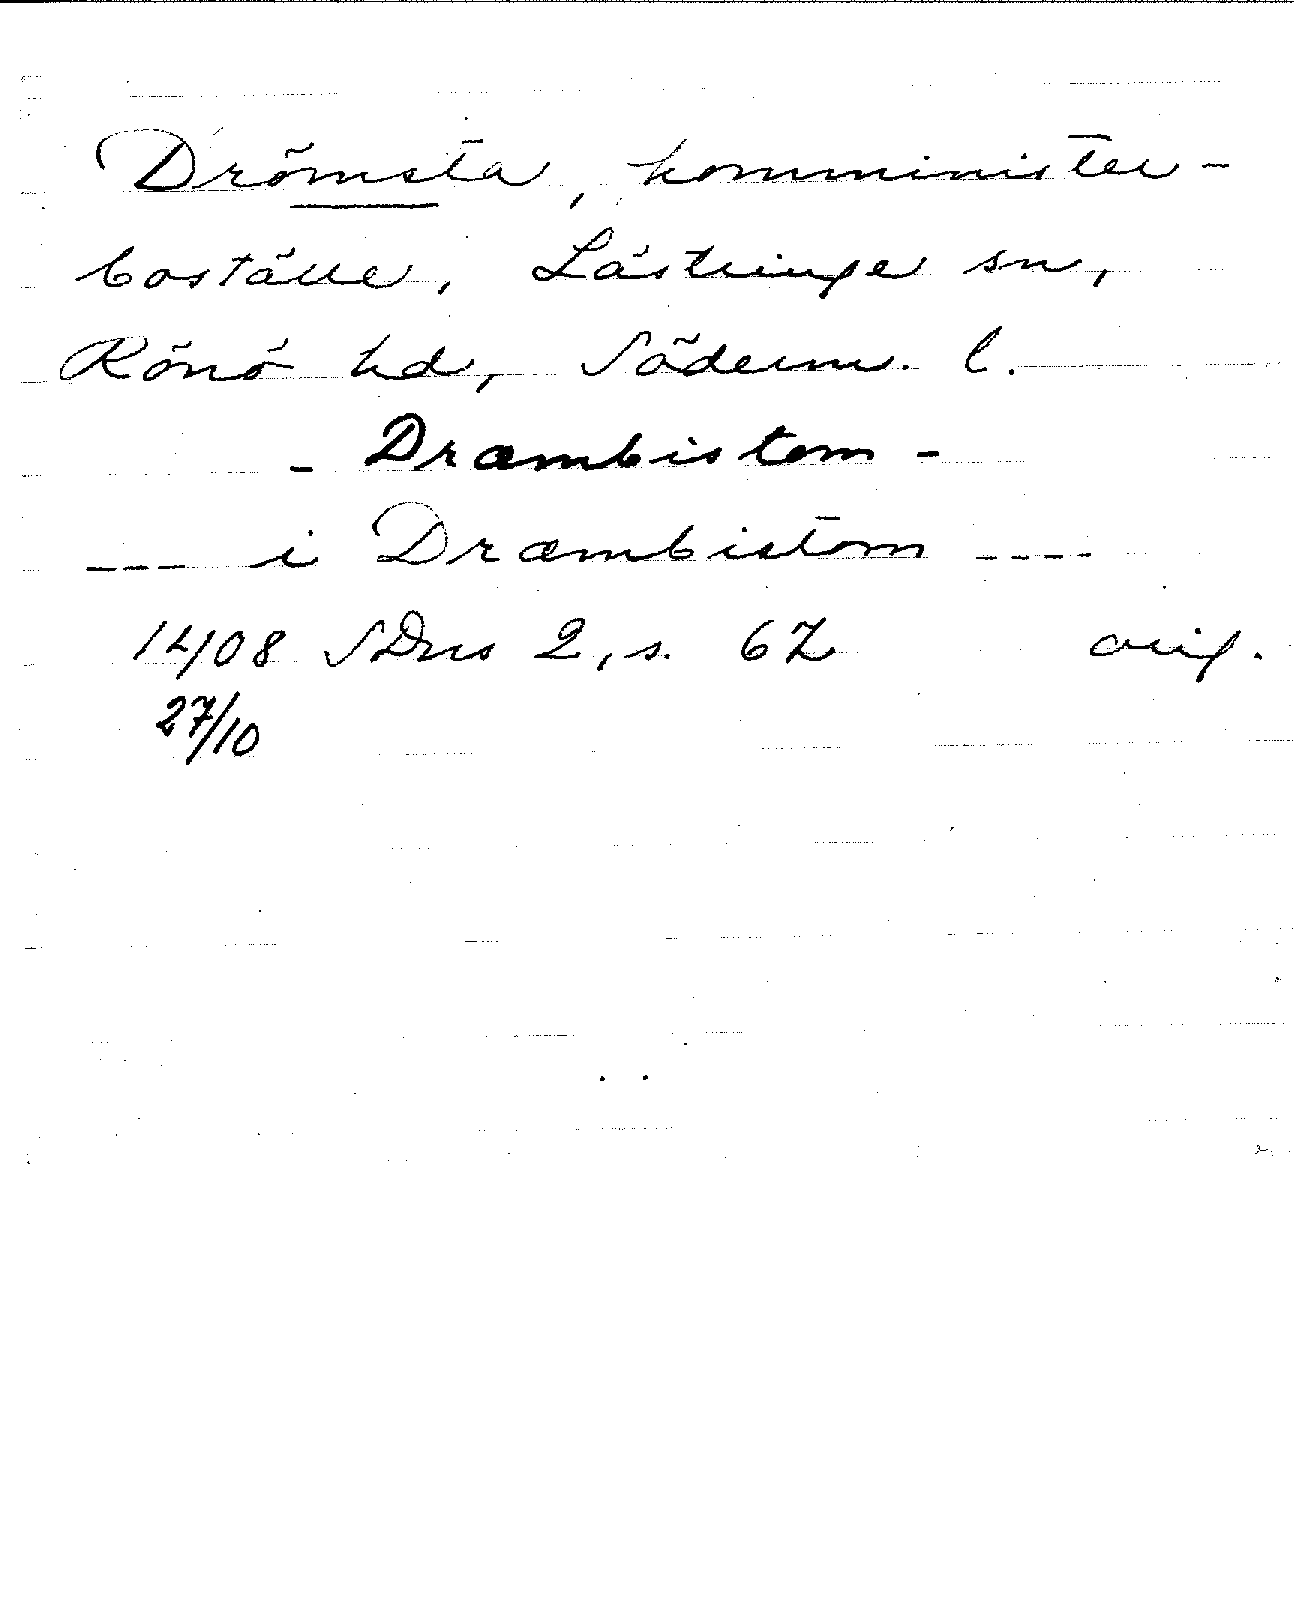 Drömsta, komminister-
boställe, Lästringe sn,
Rönö hd, Söderm. l.
- Dræmbistom -
--- i Dræmbistom ----
1408 SDns 2, s. 67 orig.
27/10